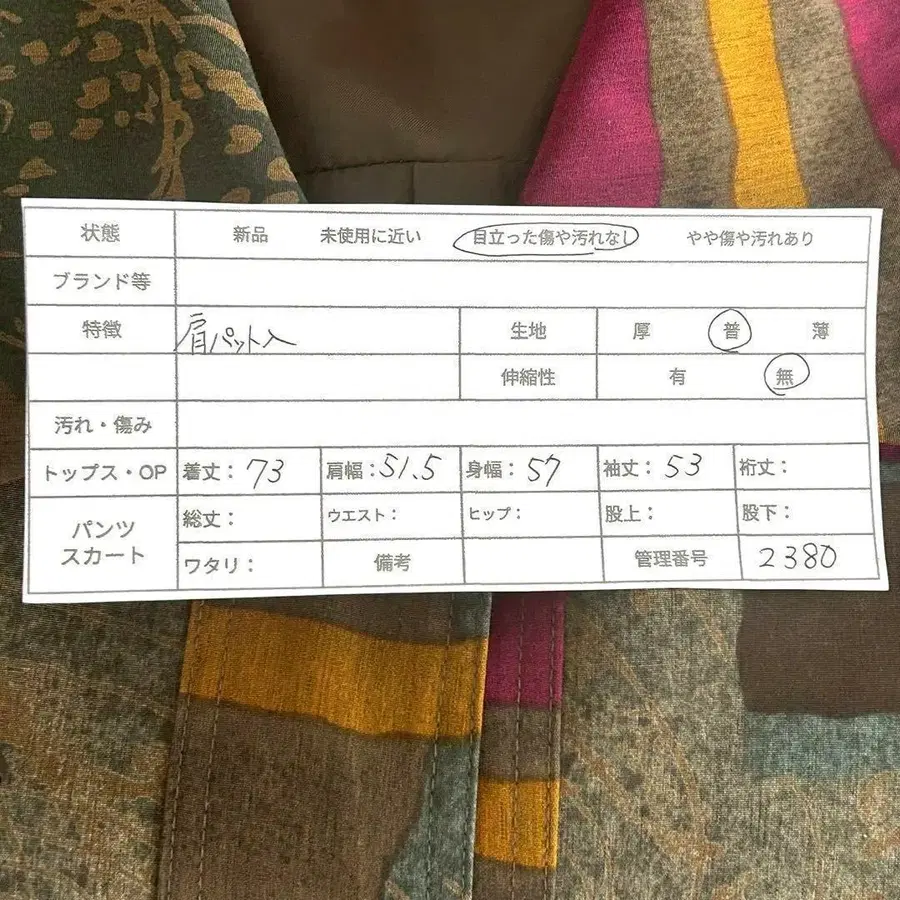 状態 新品 未使用に近い 目立った傷や汚れなし やや傷や汚れあり
ブランド等
特徴 肩パット入 生地 厚 普 薄
伸縮性 有 無
汚れ・傷み
トップス・OP 着丈： 73 肩幅： 51.5 身幅： 57 袖丈： 53 裄丈：
パンツ スカート 総丈： ウエスト： ヒップ： 股上： 股下：
ワタリ： 備考 管理番号 2380